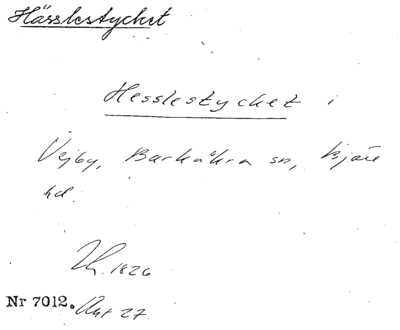 Hässlestycket
Hesslestycket i
Vejby, Barkåkra sn, Bjäre
hd.
1826
Nr 7012. Akt 27.